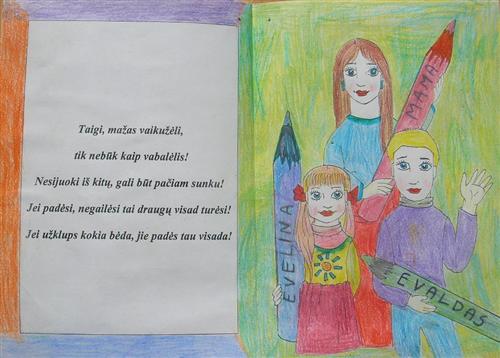 Taigi, mažas vaikužėli,
tik nebūk kaip vabalėlis!
Nesijuoki iš kitų, gali būt pačiam sunku!
Jei padėsi, negailėsi tai draugų visad turėsi!
Jei užklups kokia bėda, jie padės tau visada!
MAMA
EVELINA
EVALDAS